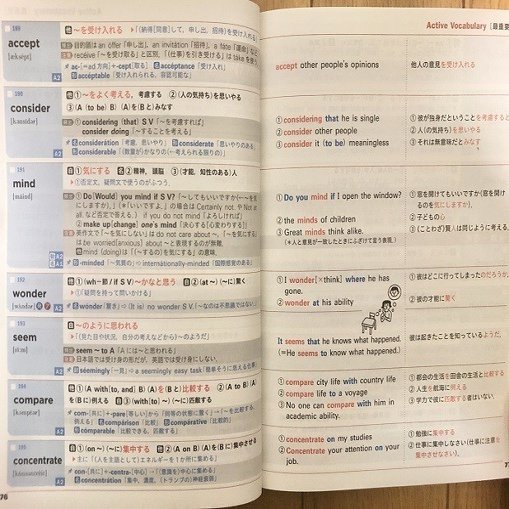 189
accept
[əksépt]
A2
～を受け入れる ▶(納得[同意]して、申し出、招待)を受け入れる
目的語は an offer「申し出」、an invitation「招待」、a fate「運命」など
receive「～を受け取る」と区別。「(仕事)を引き受ける」は take を使う
acceptance「受け入れ」
acceptable「受け入れられる、容認可能な」
190
consider
[kənsídər]
A2
①～をよく考える，考慮する ②(人の気持ち)を思いやる
③(A (to be) B) (A)を(B)とみなす
considering (that) S V「～を考慮すれば」
consider doing「～することを考慮する」
consideration「考慮，思いやり」 considerate「思いやりのある」
considerable「(数量が)かなりの(←考えられる限りの)」
191
mind
[máind]
①気にする ②精神，頭脳 ③(才能，知性のある)人
▶①否定文，疑問文で使うのがふつう。
①Do[Would] you mind if S V?「～してもいいですか(←～を気
にしますか)」(*「いいですよ。」の場合は Certainly not. や Not at
all. など否定で答える) if you do not mind「よろしければ」
②make up[change] one's mind「決心する[心変わりする]」
英作文で「～を気にしない」は do not care about ～，「～を気にする」
は be worried[anxious] about ～と表現するのが無難。
mind (doing) は「(～するの)を気にする」の意味。
-minded「～気質の」⇨internationally-minded「国際感覚のある」
192
wonder
A2
①(wh-節 / if S V) ～かなと思う ②(at ～) (～に)驚く
▶①「疑問を持って問いかける」
wonder「驚き」⇨(It is) no wonder S V.「～なのは不思議ではない」
193
seem
[síːm]
A2
～のように思われる
▶(見た目や状況，自分の考えなどから)～のようだ」
seem ～ to A「A には～と思われる」
日本語では受け身の形だが，英語では受け身にしない。
seemingly「一見」⇨a seemingly easy task「簡単そうに思える仕事」
194
compare
A2
①(A with[to, and] B) (A)を(B)と比較する ②(A to B) (A)
を(B)に例える ③(with[to] ～) (～に)匹敵する
comparison「比較」 comparative「比較的」
comparable「比較できる，匹敵する」
195
concentrate
A2
①(on ～) (～に)集中する ②(A on B) (A)を(B)に集中させる
▶主に「(人を主語として)エネルギーを1か所に集める」
con-(共に)+-centra-(中心)→「(意識を)中心に集める」
concentration「集中，濃度，(トランプの)神経衰弱」
76
Active Vocabulary
accept other people's opinions
他人の意見を受け入れる
①considering that he is single
②consider other people
③consider it (to be) meaningless
①彼が独身だということを考慮すると
②人(の気持ち)を思いやる
③それは無意味だとみなす
①Do you mind if I open the window?
②the minds of children
③Great minds think alike.
(*人と意見が一致したときにふざけて言う表現)
①窓を開けてもいいですか(窓を開け
るのを気にしますか)。
②子どもの心
③(ことわざ)賢人は同じように考える。
①I wonder [×think] where he has
gone.
②wonder at his ability
①彼はどこに行ってしまったのだろうか。
②彼の才能に驚く
It seems that he knows what happened.
(=He seems to know what happened.)
彼は起きたことを知っているようだ。
①compare city life with country life
②compare life to a voyage
③No one can compare with him in
academic ability.
①都会の生活を田舎の生活と比較する
②人生を航海に例える
③学力で彼に匹敵する者はいない。
①concentrate on my studies
②Concentrate your attention on your
job.
①勉強に集中する
②仕事に集中しなさい(仕事に注意を
集中させなさい)。